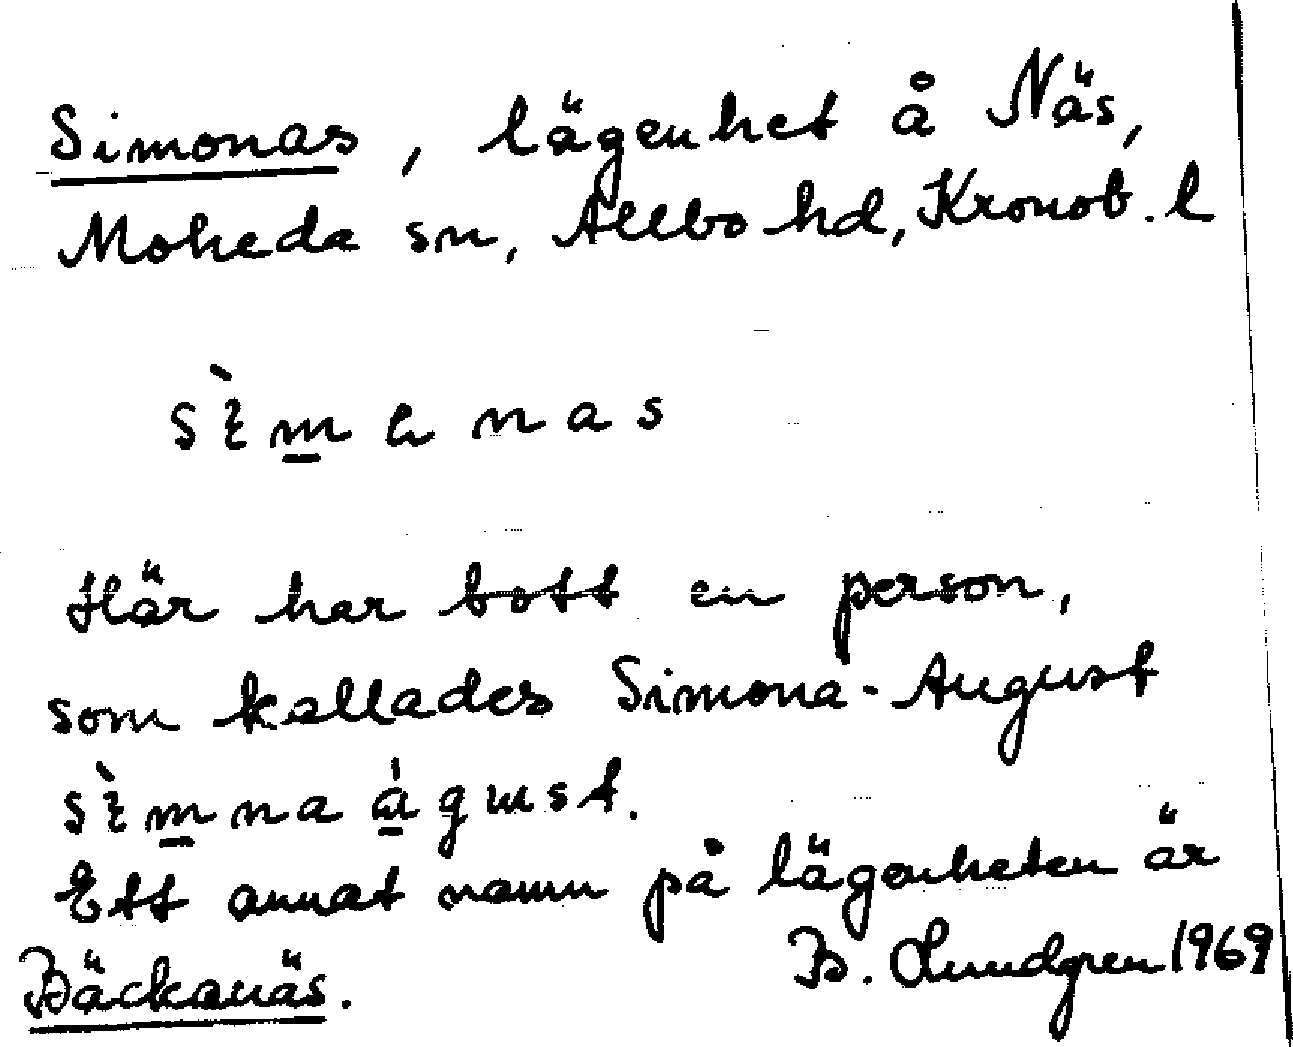 Simonas, lägenhet å Näs,
Moheda sn, Allbo hd, Kronob. l
Här har bott en person,
som kallades Simona-August
Ett annat namn på lägenheten är
Bäckanäs. B. Lundgren 1969